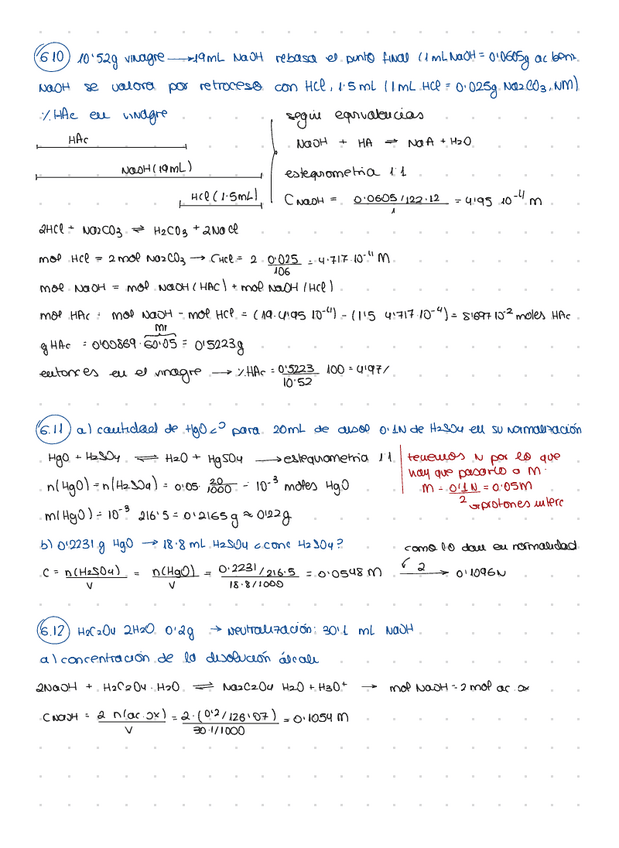 6.10 10'52g vinagre → 19mL NaOH rebasa el punto final (1mL NaOH = 0'0605g ac benz.
NaOH se valora por retroceso con HCl, 1.5mL (1mL HCl = 0.025g Na2CO3, NM)
% HAc en vinagre
HAc
NaOH (19mL)
HCl (1.5mL)
según equivalencias
NaOH + HA ⇌ NaA + H2O
estequiometria 1:1
C NaOH = 0.0605/122.12 / 1 = 4'95 10^-4 M
2HCl + Na2CO3 ⇌ H2CO3 + 2NaCl
mol HCl = 2 mol Na2CO3 → CHCl = 2 · 0.025/106 = 4.717·10^-4 M
mol NaOH = mol NaOH (HAc) + mol NaOH (HCl)
mol HAc = mol NaOH - mol HCl = (19·4'95 10^-4) - (1'5 4'717·10^-4) = 8'697·10^-3 moles HAc
Mr
g HAc = 0'00869 · 60.05 = 0'5223g
entonces en el vinagre → % HAc = 0'5223/10.52 100 = 4'97%
6.11 a) cantidad de HgO c? para 20mL de disol 0.1N de H2SO4 en su normalización
HgO + H2SO4 ⇌ H2O + HgSO4 → estequiometria 1:1
n(HgO) = n(H2SO4) = 0'05 · 20/1000 = 10^-3 moles HgO
m(HgO) = 10^-3 · 216'5 = 0'2165g ≈ 0'22g
tenemos N por lo que
hay que pasarlo a M
M = 0'1N/2 = 0.05M
→ protones interc
b) 0'2231g HgO → 18.8 mL H2SO4 c conc H2SO4?
C = n(H2SO4)/V = n(HgO)/V = 0.2231/216.5 / 18.8/1000 = 0.0548 M
como lo dan en normalidad
2 → 0'1096N
6.12 H2C2O4 2H2O 0'2g → Neutralización: 30.1 mL NaOH
a) concentración de la disolución álcali
2NaOH + H2C2O4 · H2O ⇌ Na2C2O4 H2O + H3O+ → mol NaOH = 2 mol ac. ox
C NaOH = 2 n(ac. ox)/V = 2 · (0'2/126'07) / 30.1/1000 = 0.1054 M